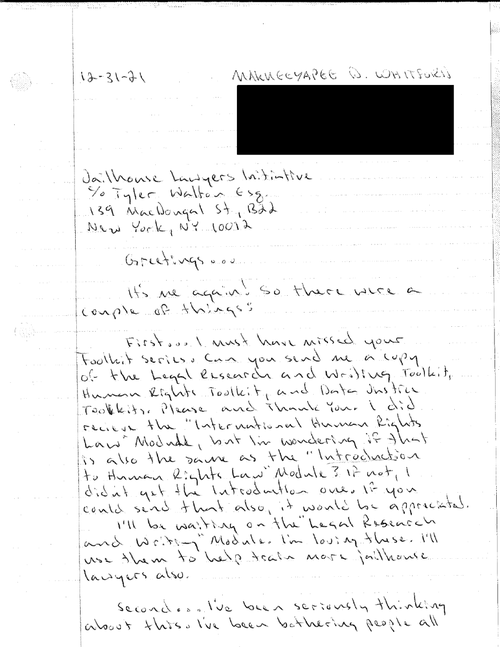 12-31-21 MAKUEEYAPEE D. WHITFORD
Jailhouse Lawyers Initiative
c/o Tyler Walton Esq.
139 MacDougal St, B22
New York, NY 10012
Greetings...
It's me again! So there were a
couple of things:
First... I must have missed your
Toolkit series. Can you send me a copy
of the Legal Research and Writing Toolkit,
Human Rights Toolkit, and Data Justice
Toolkits. Please and Thank You. I did
recieve the "International Human Rights
Law" Module, but I'm wondering if that
is also the same as the "Introduction
to Human Rights Law" Module? If not, I
didn't get the Introduction one. If you
could send that also, it would be appreciated.
I'll be waiting on the "Legal Research
and Writing" Module. I'm loving these. I'll
use them to help train more jailhouse
lawyers also.
Second... I've been seriously thinking
about this. I've been bothering people all